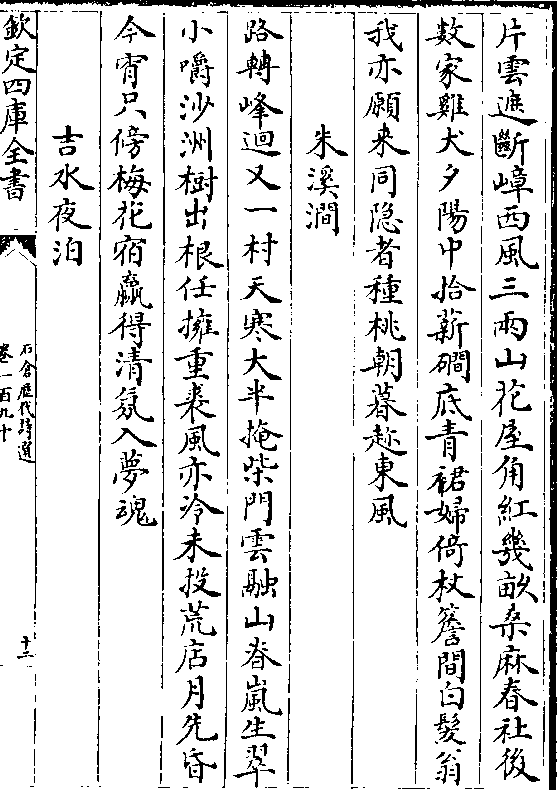 片雲遮斷嶂西風三兩山花屋角紅幾畝桑麻春社後
數家雞犬夕陽中拾薪磵底青裙婦倚杖簷間白髮翁
我亦願来同隐者種桃朝暮趂東風
朱溪澗
路轉峰迴又一村天寒大半掩柴門雲融山脊嵐生翠
小嚼沙洲樹出根任擁重裘風亦冷未投荒店月先昏
今宵只傍梅花宿贏得清氛入夢魂
吉水夜泊
欽定四庫全書
石倉歷代詩選
卷一百九十
十二